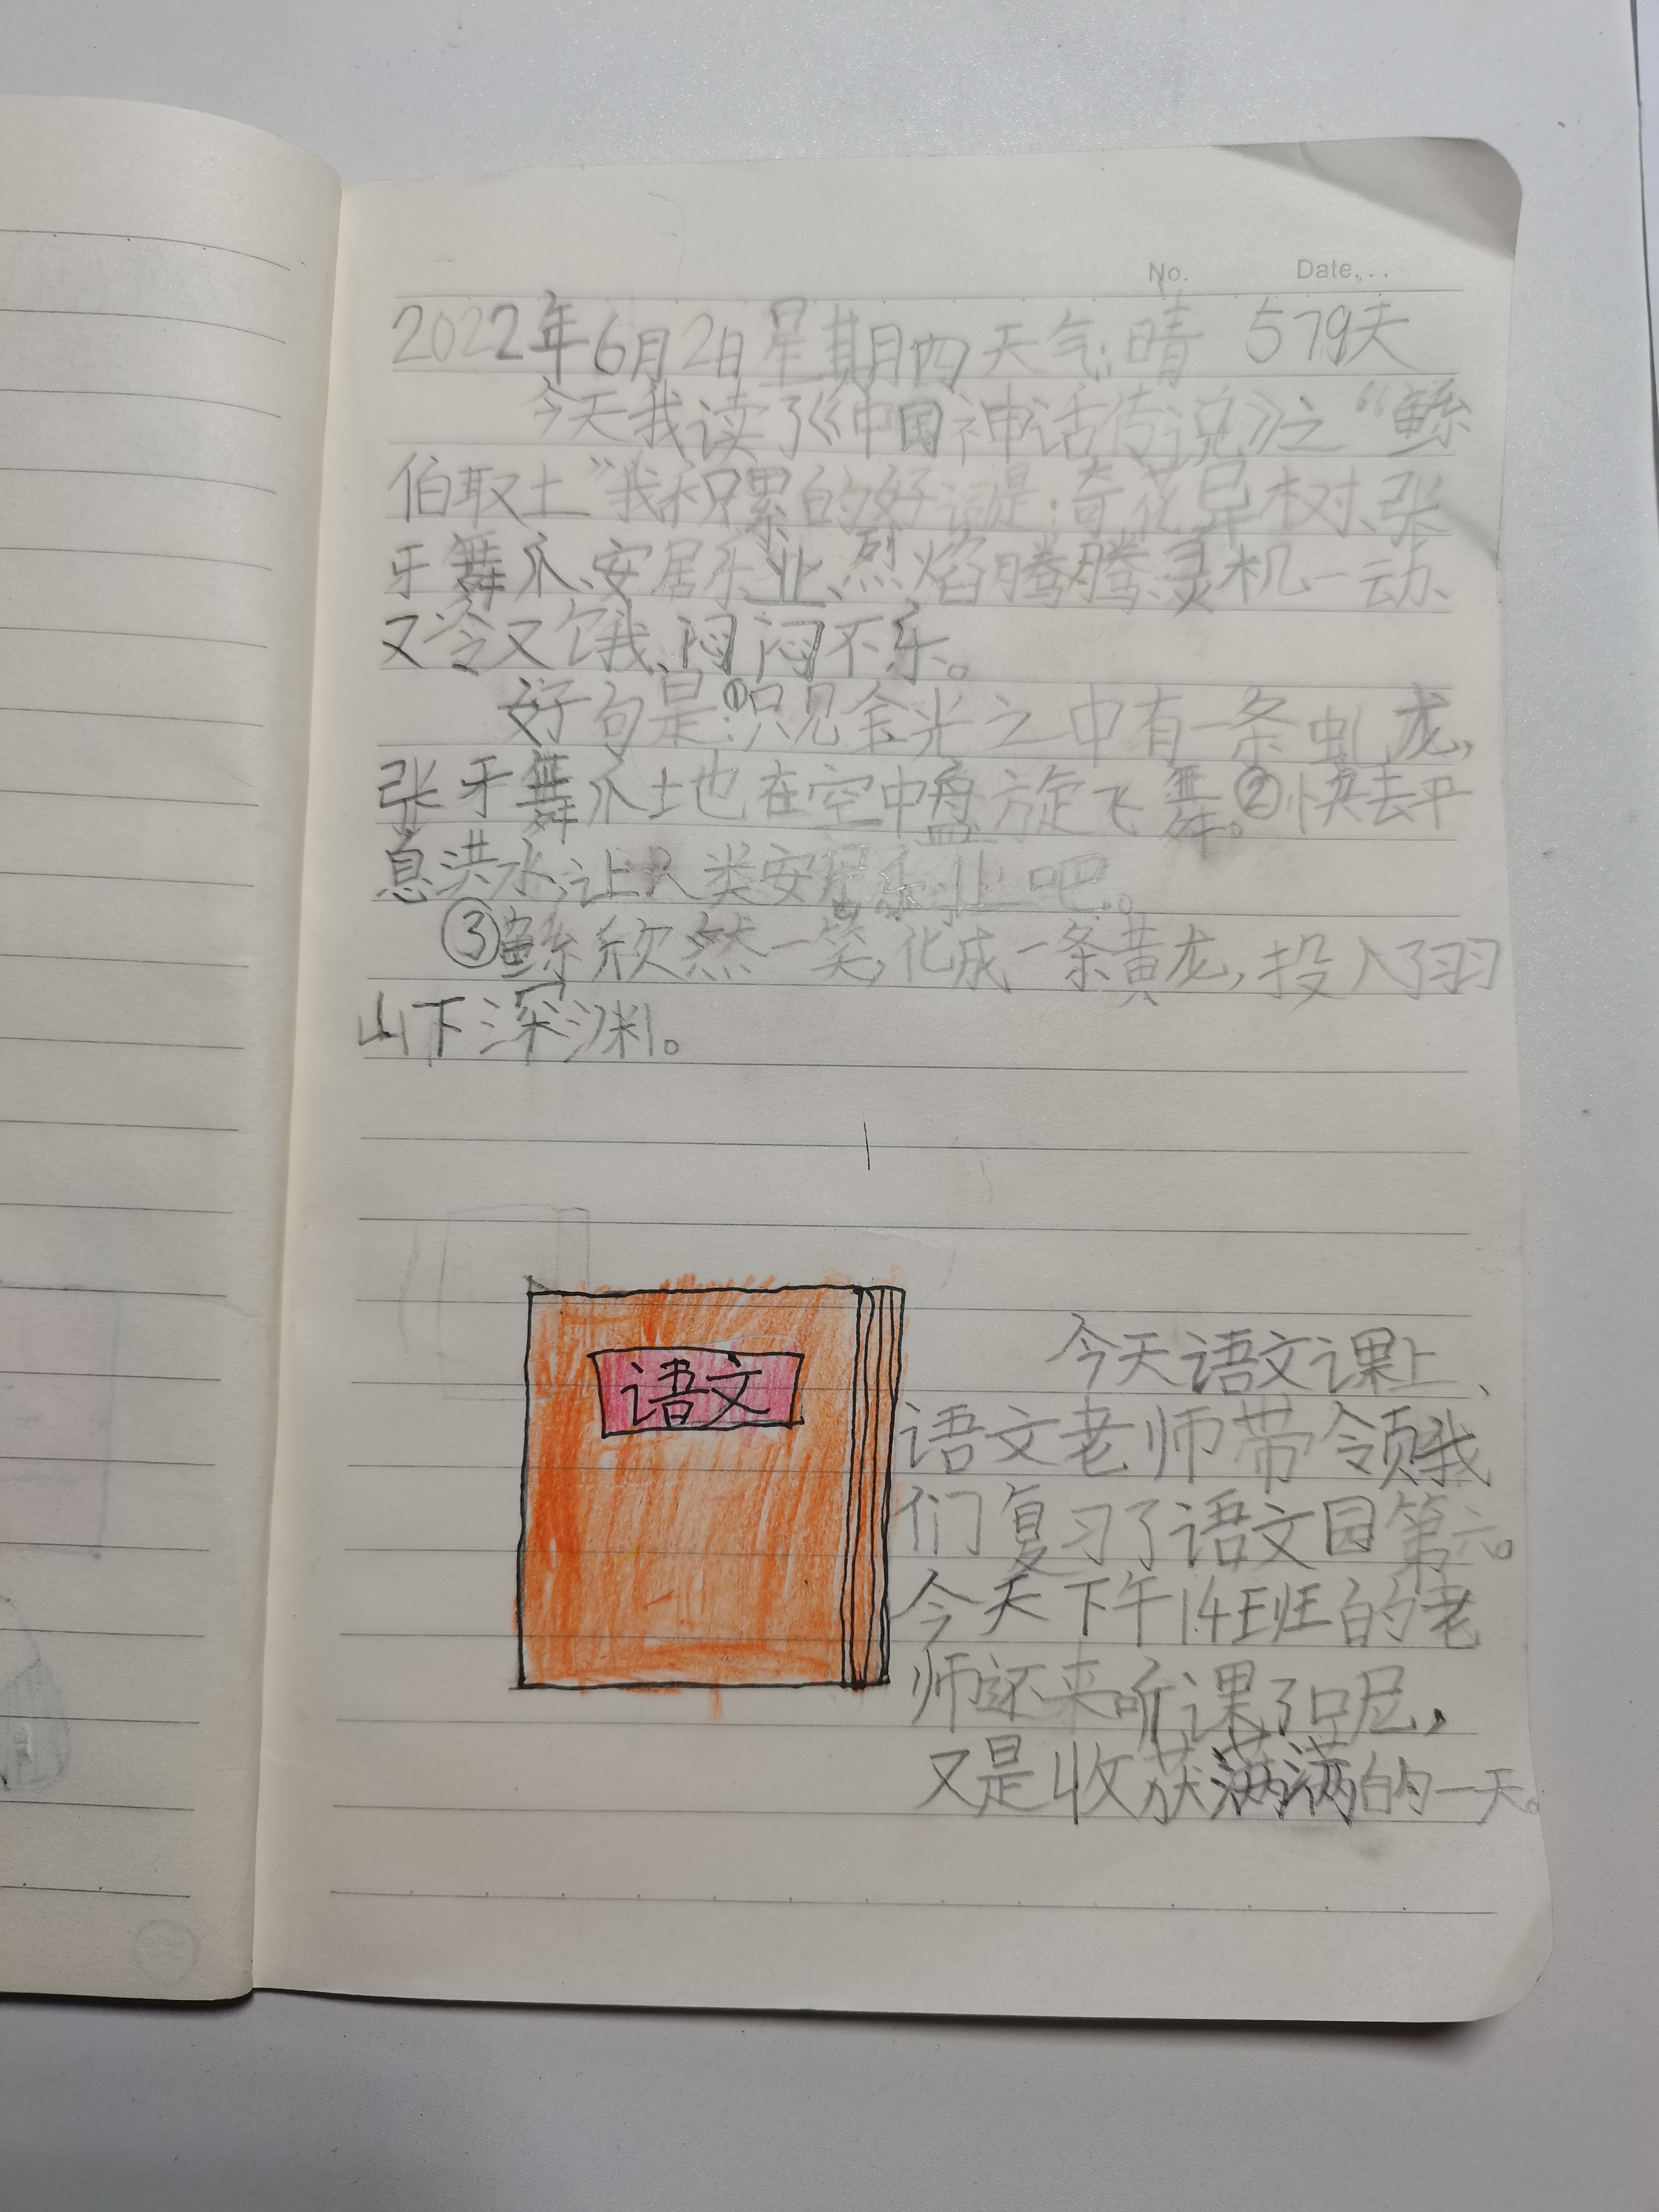 No.
Date.
2022年6月2日星期四天气:晴 579天
今天我读了《中国神话传说》之“鲧
伯取土”我积累的好词是:奇花异树、张
牙舞爪、安居乐业、烈焰腾腾、灵机一动、
又冷又饿、闷闷不乐。
好句是:①只见金光之中有一条虬龙,
张牙舞爪土地在空中盘旋飞舞。②快去平
息洪水,让人类安居乐业吧。
③鲧欣然一笑,化成一条黄龙,投入了羽
山下深渊。
语文
今天语文课上、
语文老师带领我
们复习了语文园第六。
今天下午14班的老
师还来听课了呢,
又是收获满满的一天。